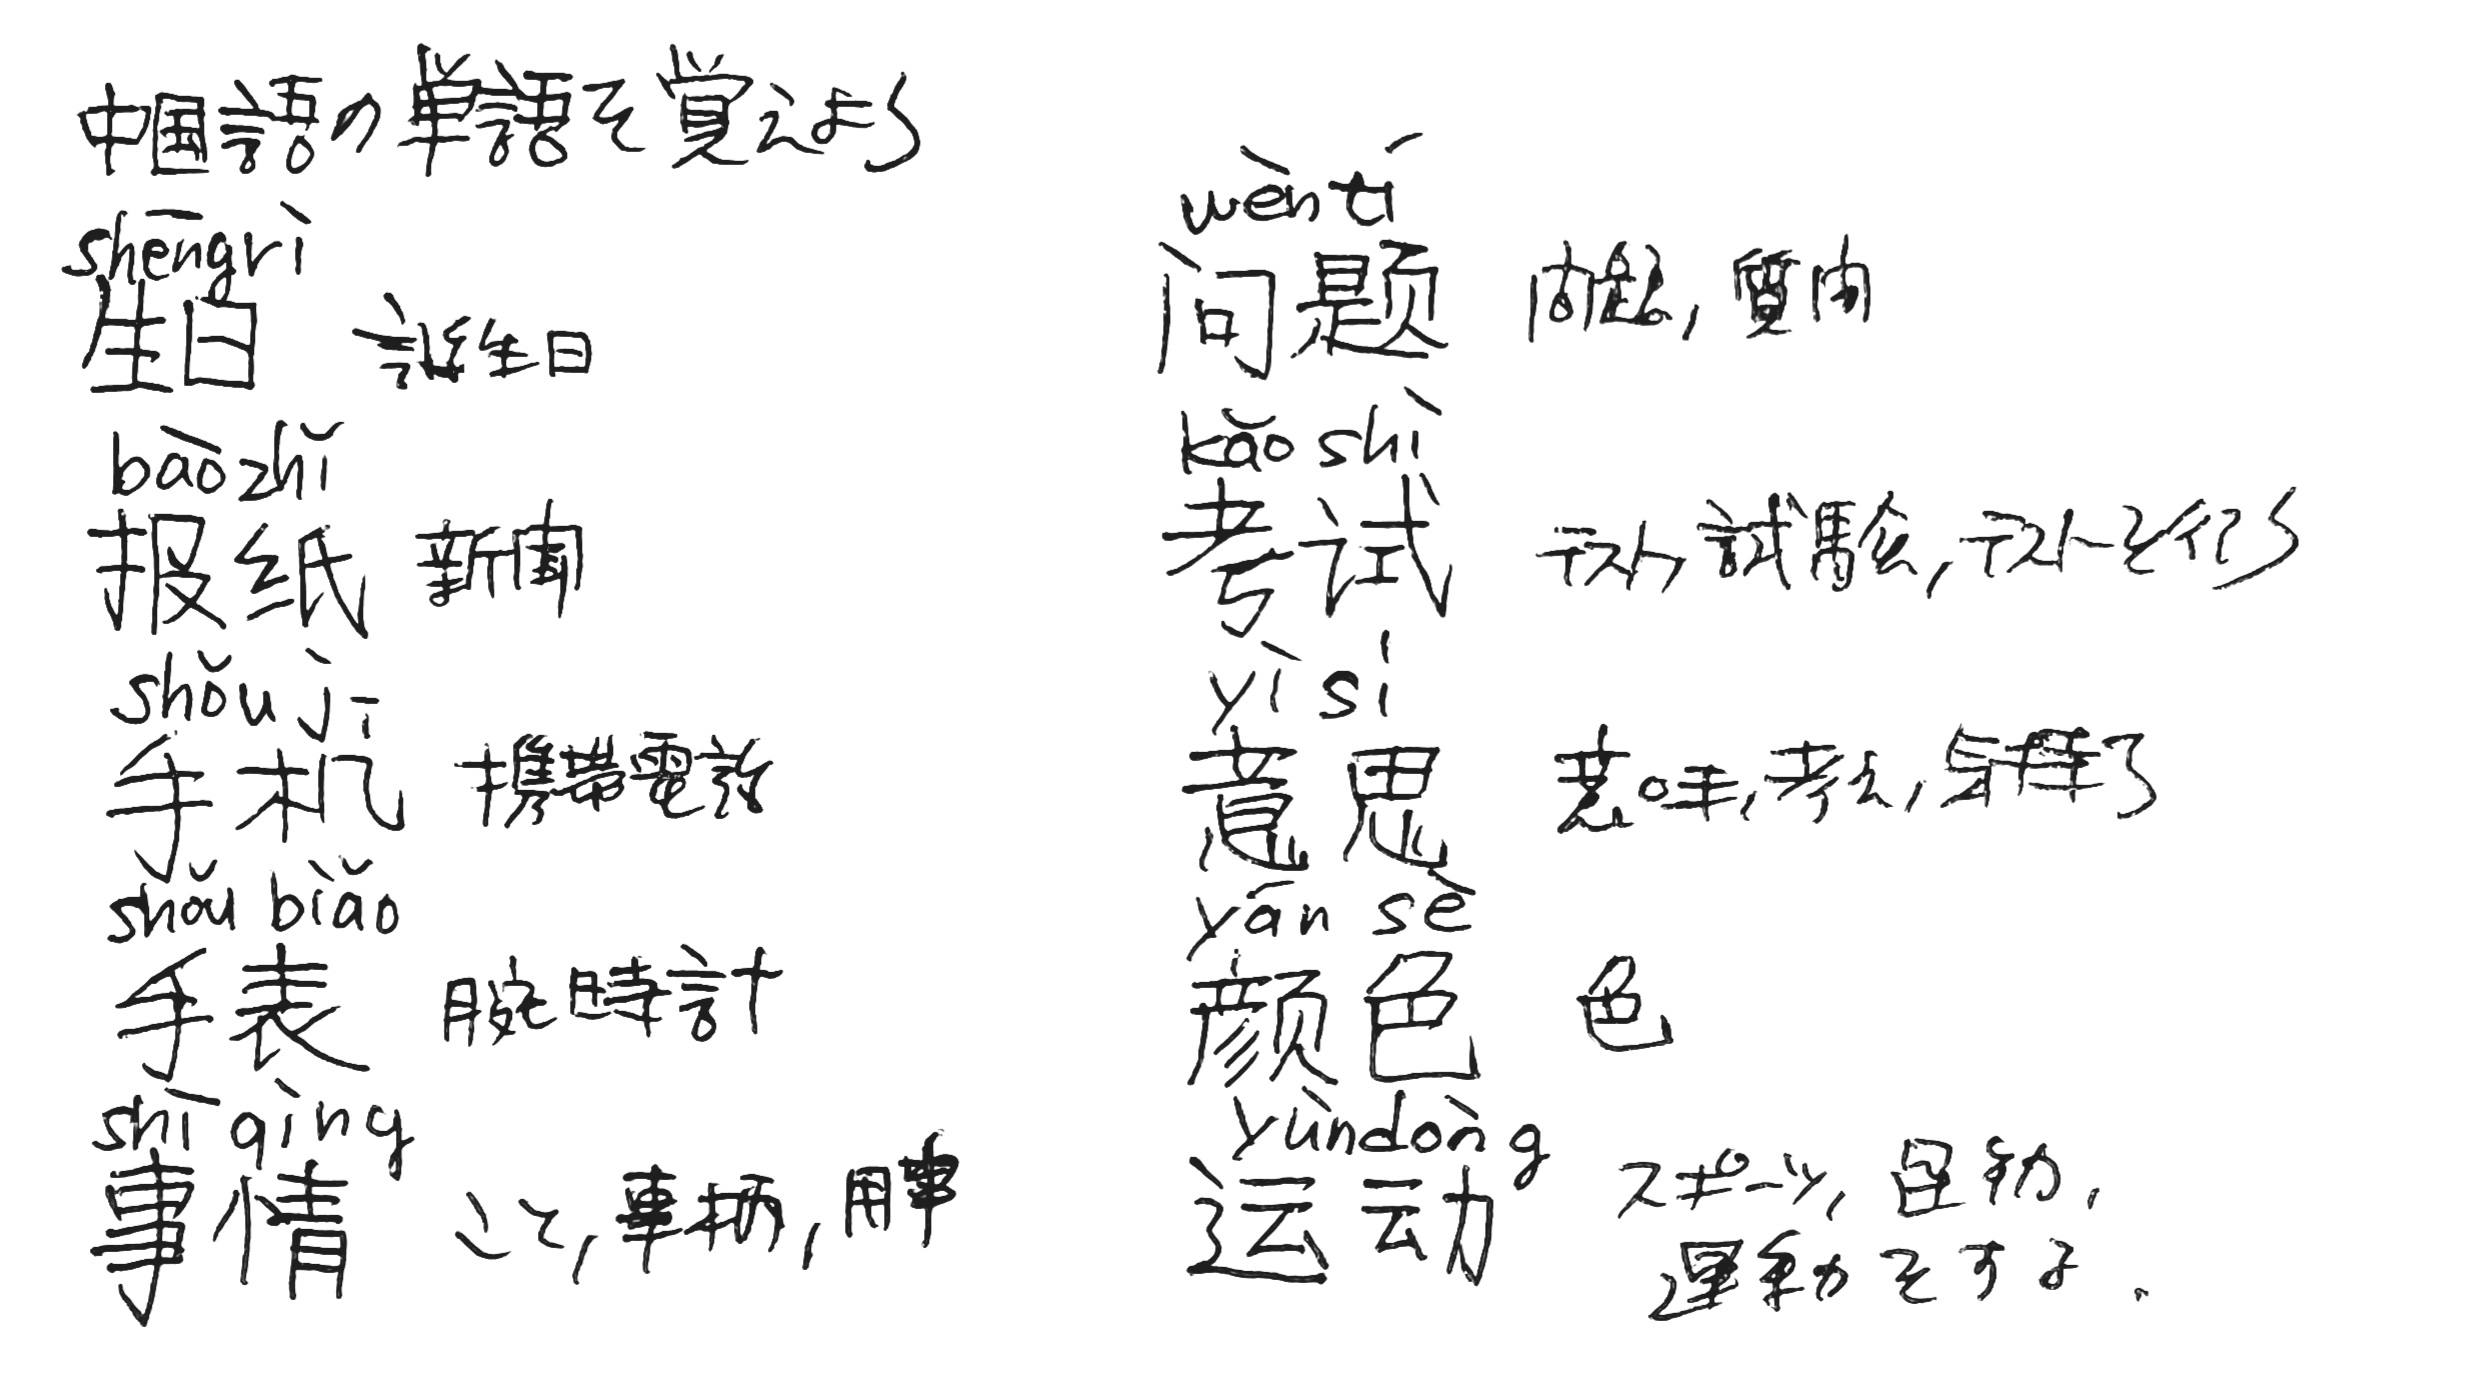 中国語の単語を覚えよう
shēngrì
生日 誕生日
bàozhǐ
报纸 新聞
shǒujī
手机 携帯電話
shǒubiǎo
手表 腕時計
shìqing
事情 こと, 事柄, 用事
wèntí
问题 問題, 質問
kǎoshì
考试 テスト, 試験, テストを行う
yìsi
意思 意味, 考え,
yánsè
颜色 色
yùndòng
运动 スポーツ, 運動,
運動をする.